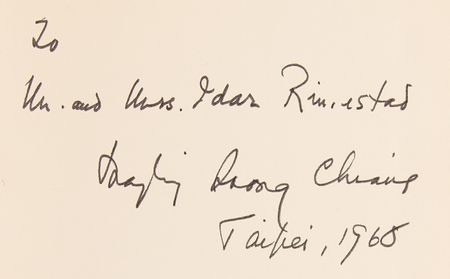 To
Mr. and Mrs. Idar Rimestad
Mayling Soong Chiang
Taipei, 1968